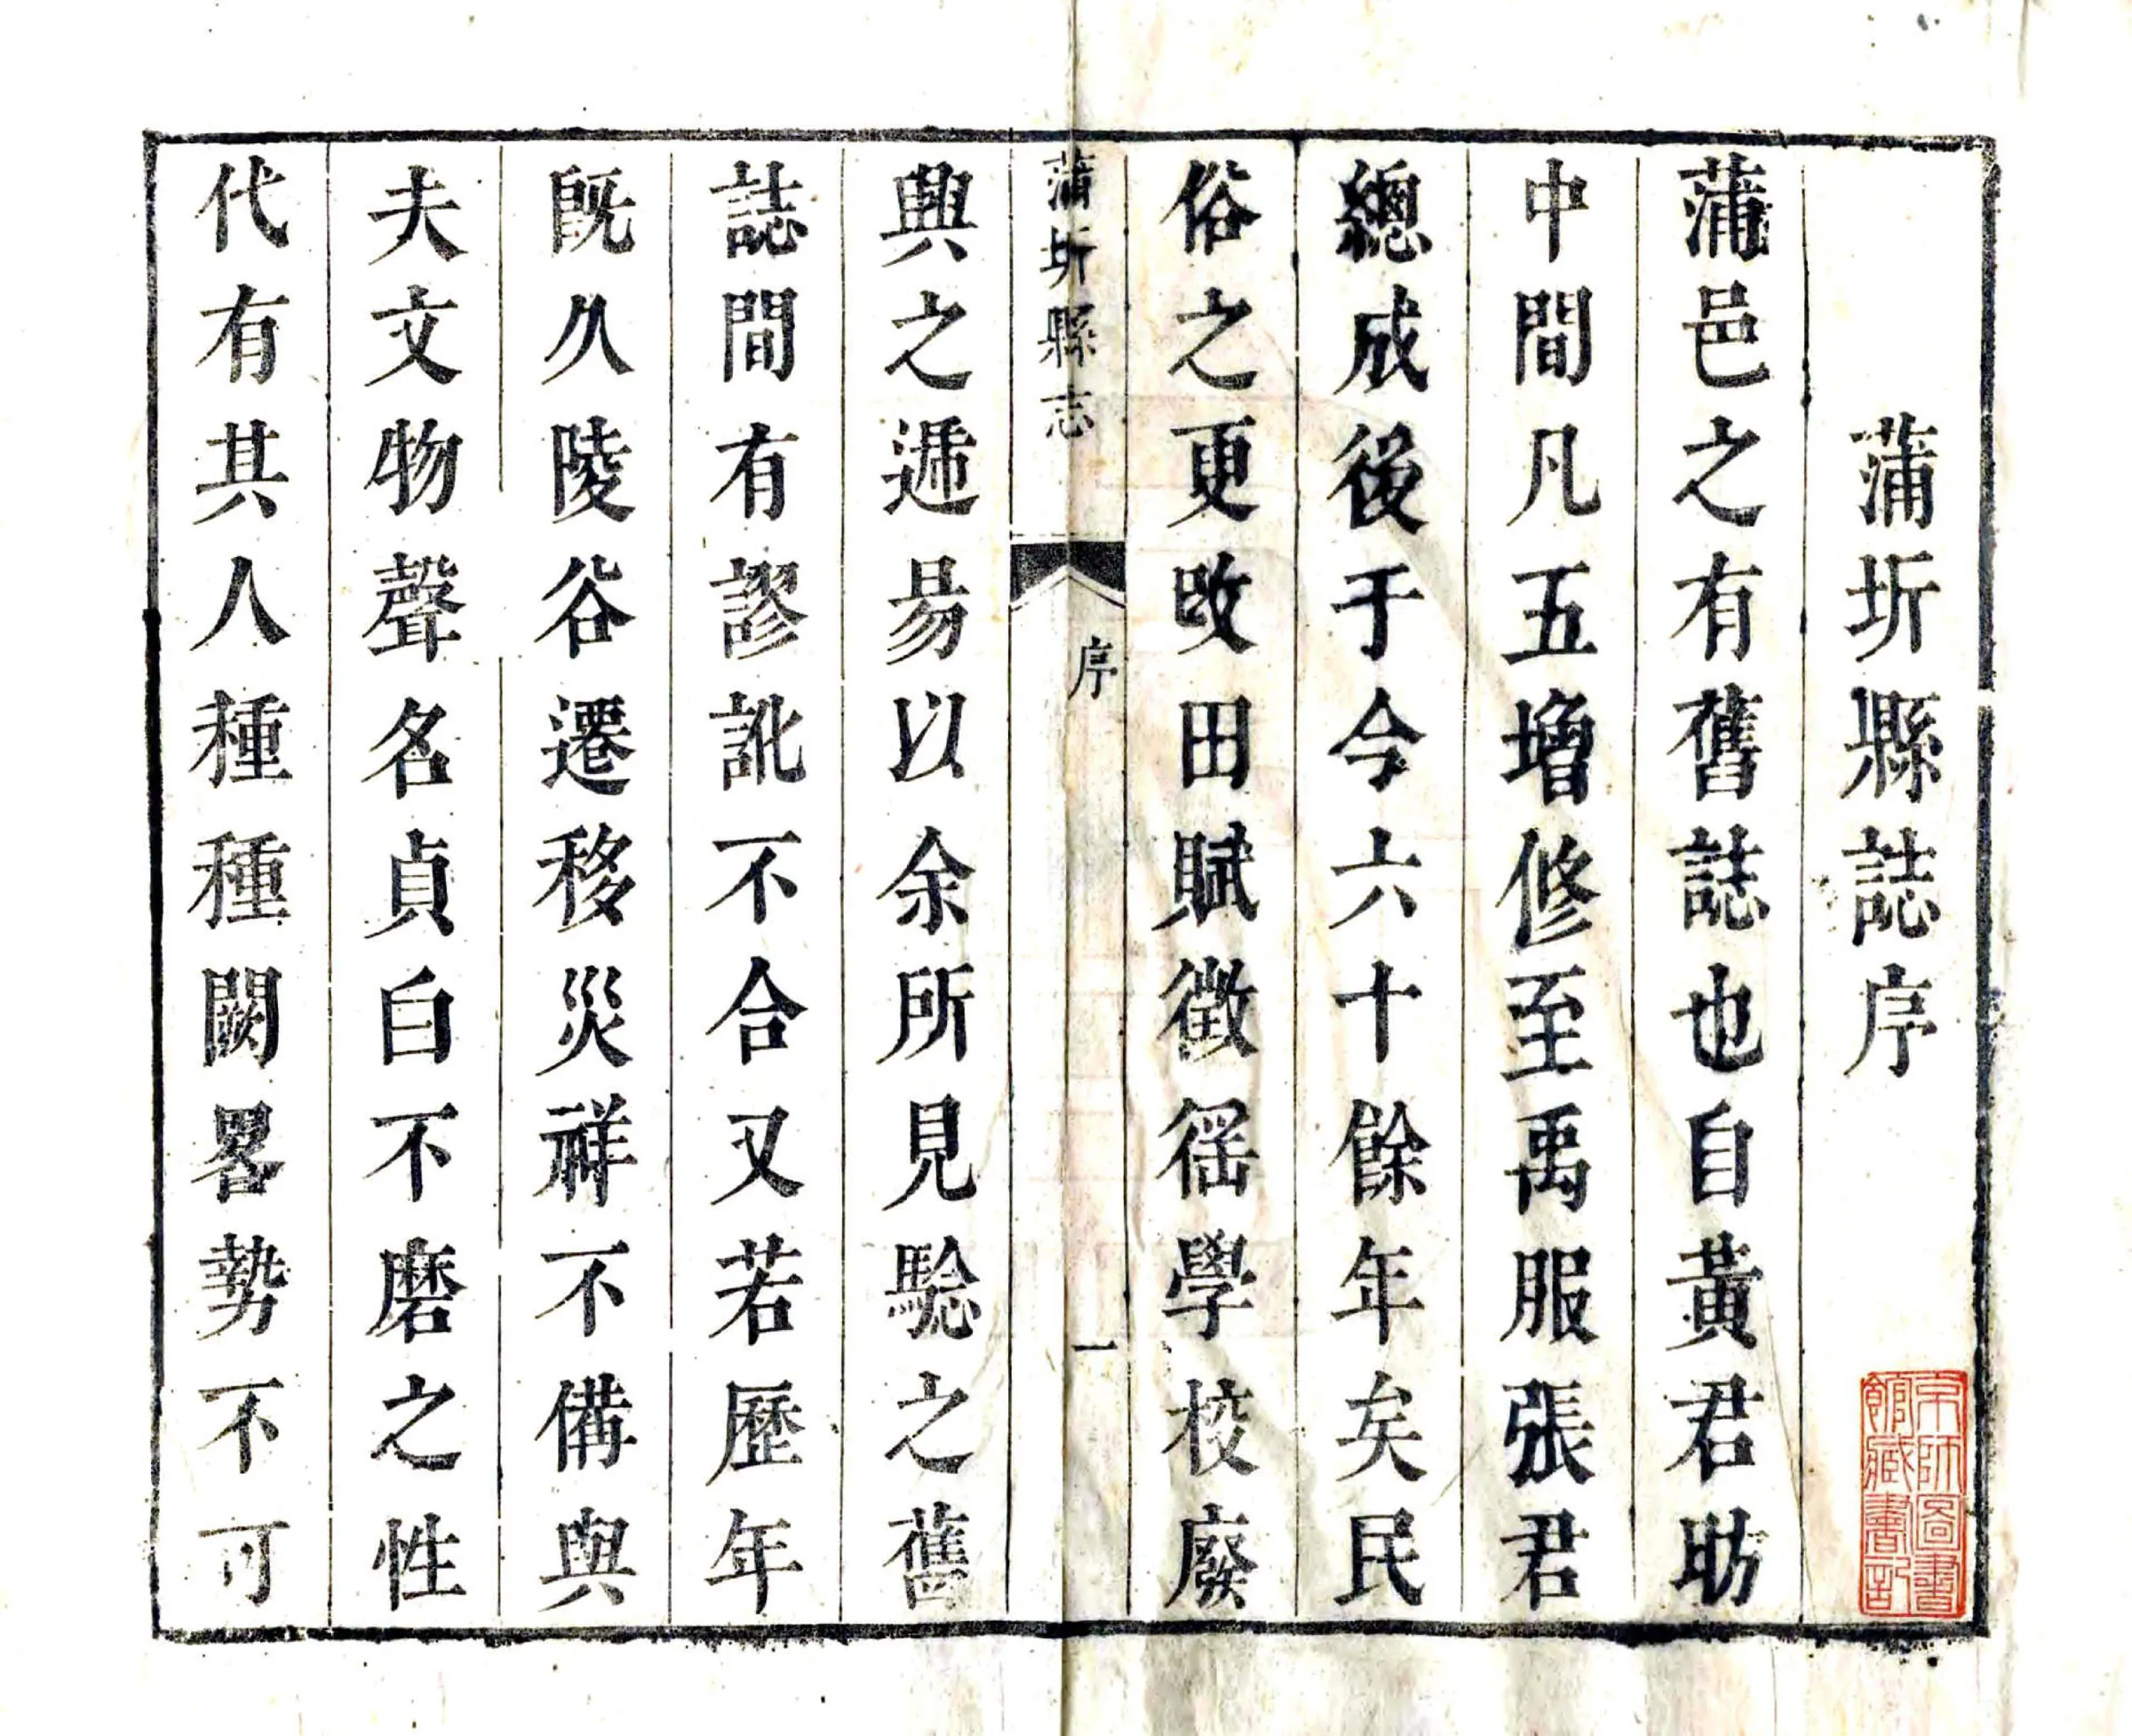 蒲圻縣誌序
蒲邑之有舊誌也自黃君昉
中間凡五增修至禹服張君
總成後于今六十餘年矣民
俗之更改田賦徵徭學校廢
蒲圻縣志
序
一
興之遞易以余所見驗之舊
誌間有謬訛不合又若歷年
旣久陵谷遷移災祥不備與
夫文物聲名貞白不磨之性
代有其人種種闕畧勢不可
京師圖書
館藏書記